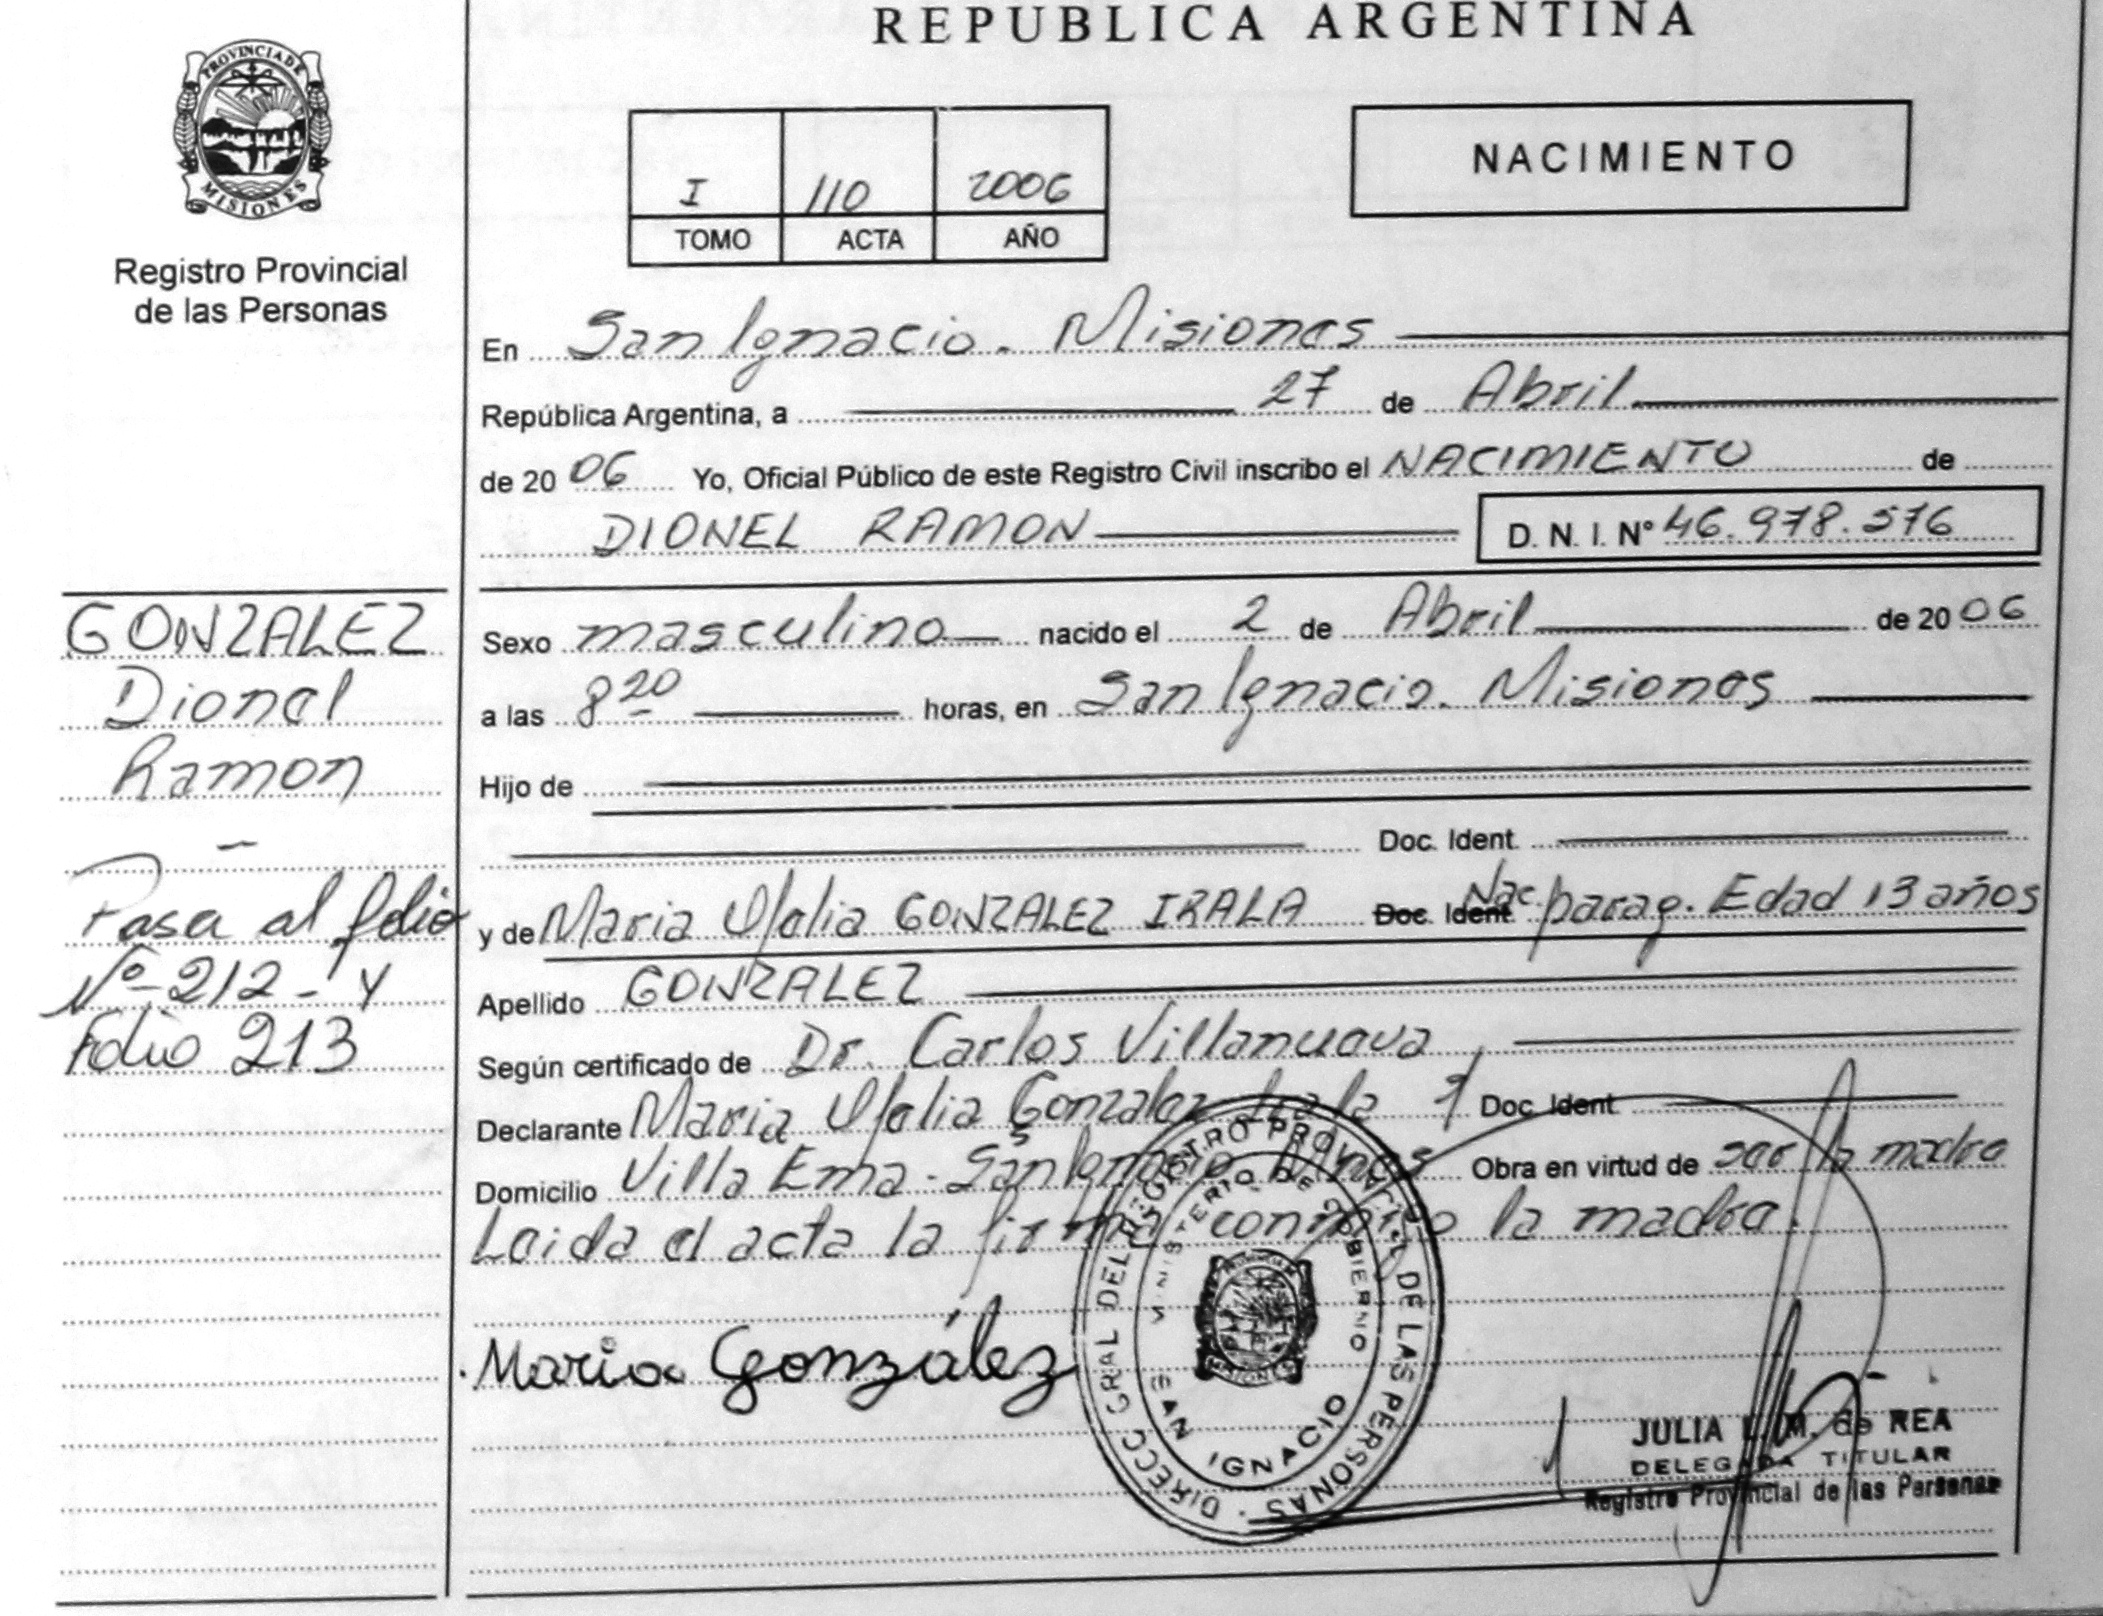 REPUBLICA ARGENTINA
PROVINCIA DE
MISIONES
Registro Provincial
de las Personas
I 110 2006
TOMO ACTA AÑO
NACIMIENTO
En San Ignacio. Misiones
República Argentina, a 27 de Abril
de 2006 Yo, Oficial Público de este Registro Civil inscribo el NACIMIENTO de
DIONEL RAMON D. N. I. Nº 46.978.576
GONZALEZ
Dionel
Ramon
Pasa al folio
Nº 212 - y
Folio 213
Sexo masculino nacido el 2 de Abril de 2006
a las 8 20 horas, en San Ignacio. Misiones
Hijo de
Doc. Ident.
y de Maria Ofelia GONZALEZ IRALA Doc. Ident. Nac. parag. Edad 13 años
Apellido GONZALEZ
Según certificado de Dr. Carlos Villanueva
Declarante Maria Ofelia Gonzalez Irala Doc. Ident.
Domicilio Villa Ema - San Ignacio Mnes Obra en virtud de ser la madre
Leida el acta la firma conmigo la madre.
Maria González
DIRECC GRAL DEL REGISTRO PROVINCIAL DE LAS PERSONAS
MINISTERIO DE GOBIERNO
SAN IGNACIO
MISIONES
JULIA L. M. de REA
DELEGADA TITULAR
Registro Provincial de las Personas